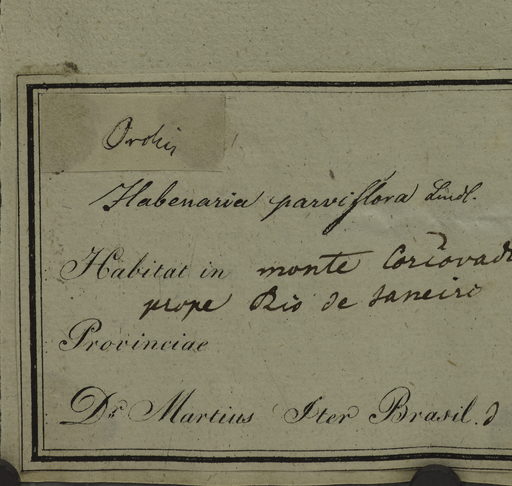 Orchis
Habenaria parviflora Lindl.
Habitat in monte Corcovado
prope Rio de Janeiro
Provinciae
Dr. Martius Iter Brasil.